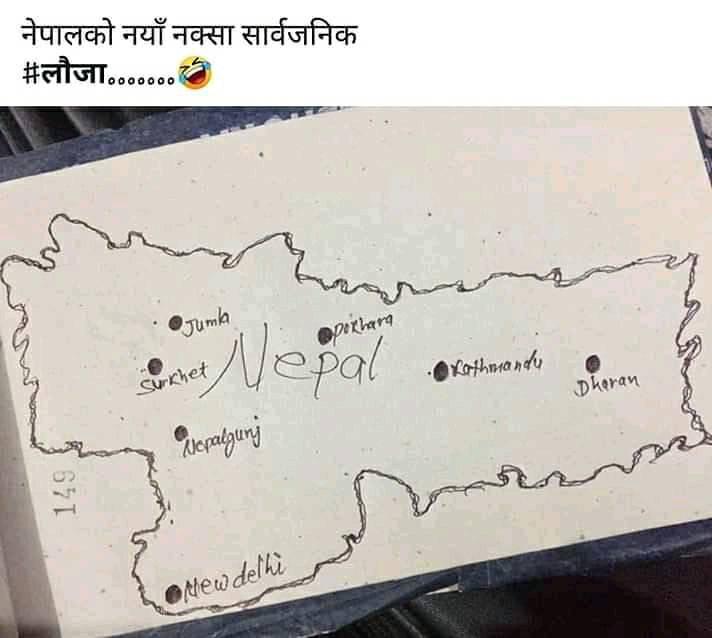 नेपालको नयाँ नक्सा सार्वजनिक
#लौजा.......🤣
Jumla
pokhara
Surkhet
Nepal
Kathmandu
Dharan
Nepalgunj
149
New delhi